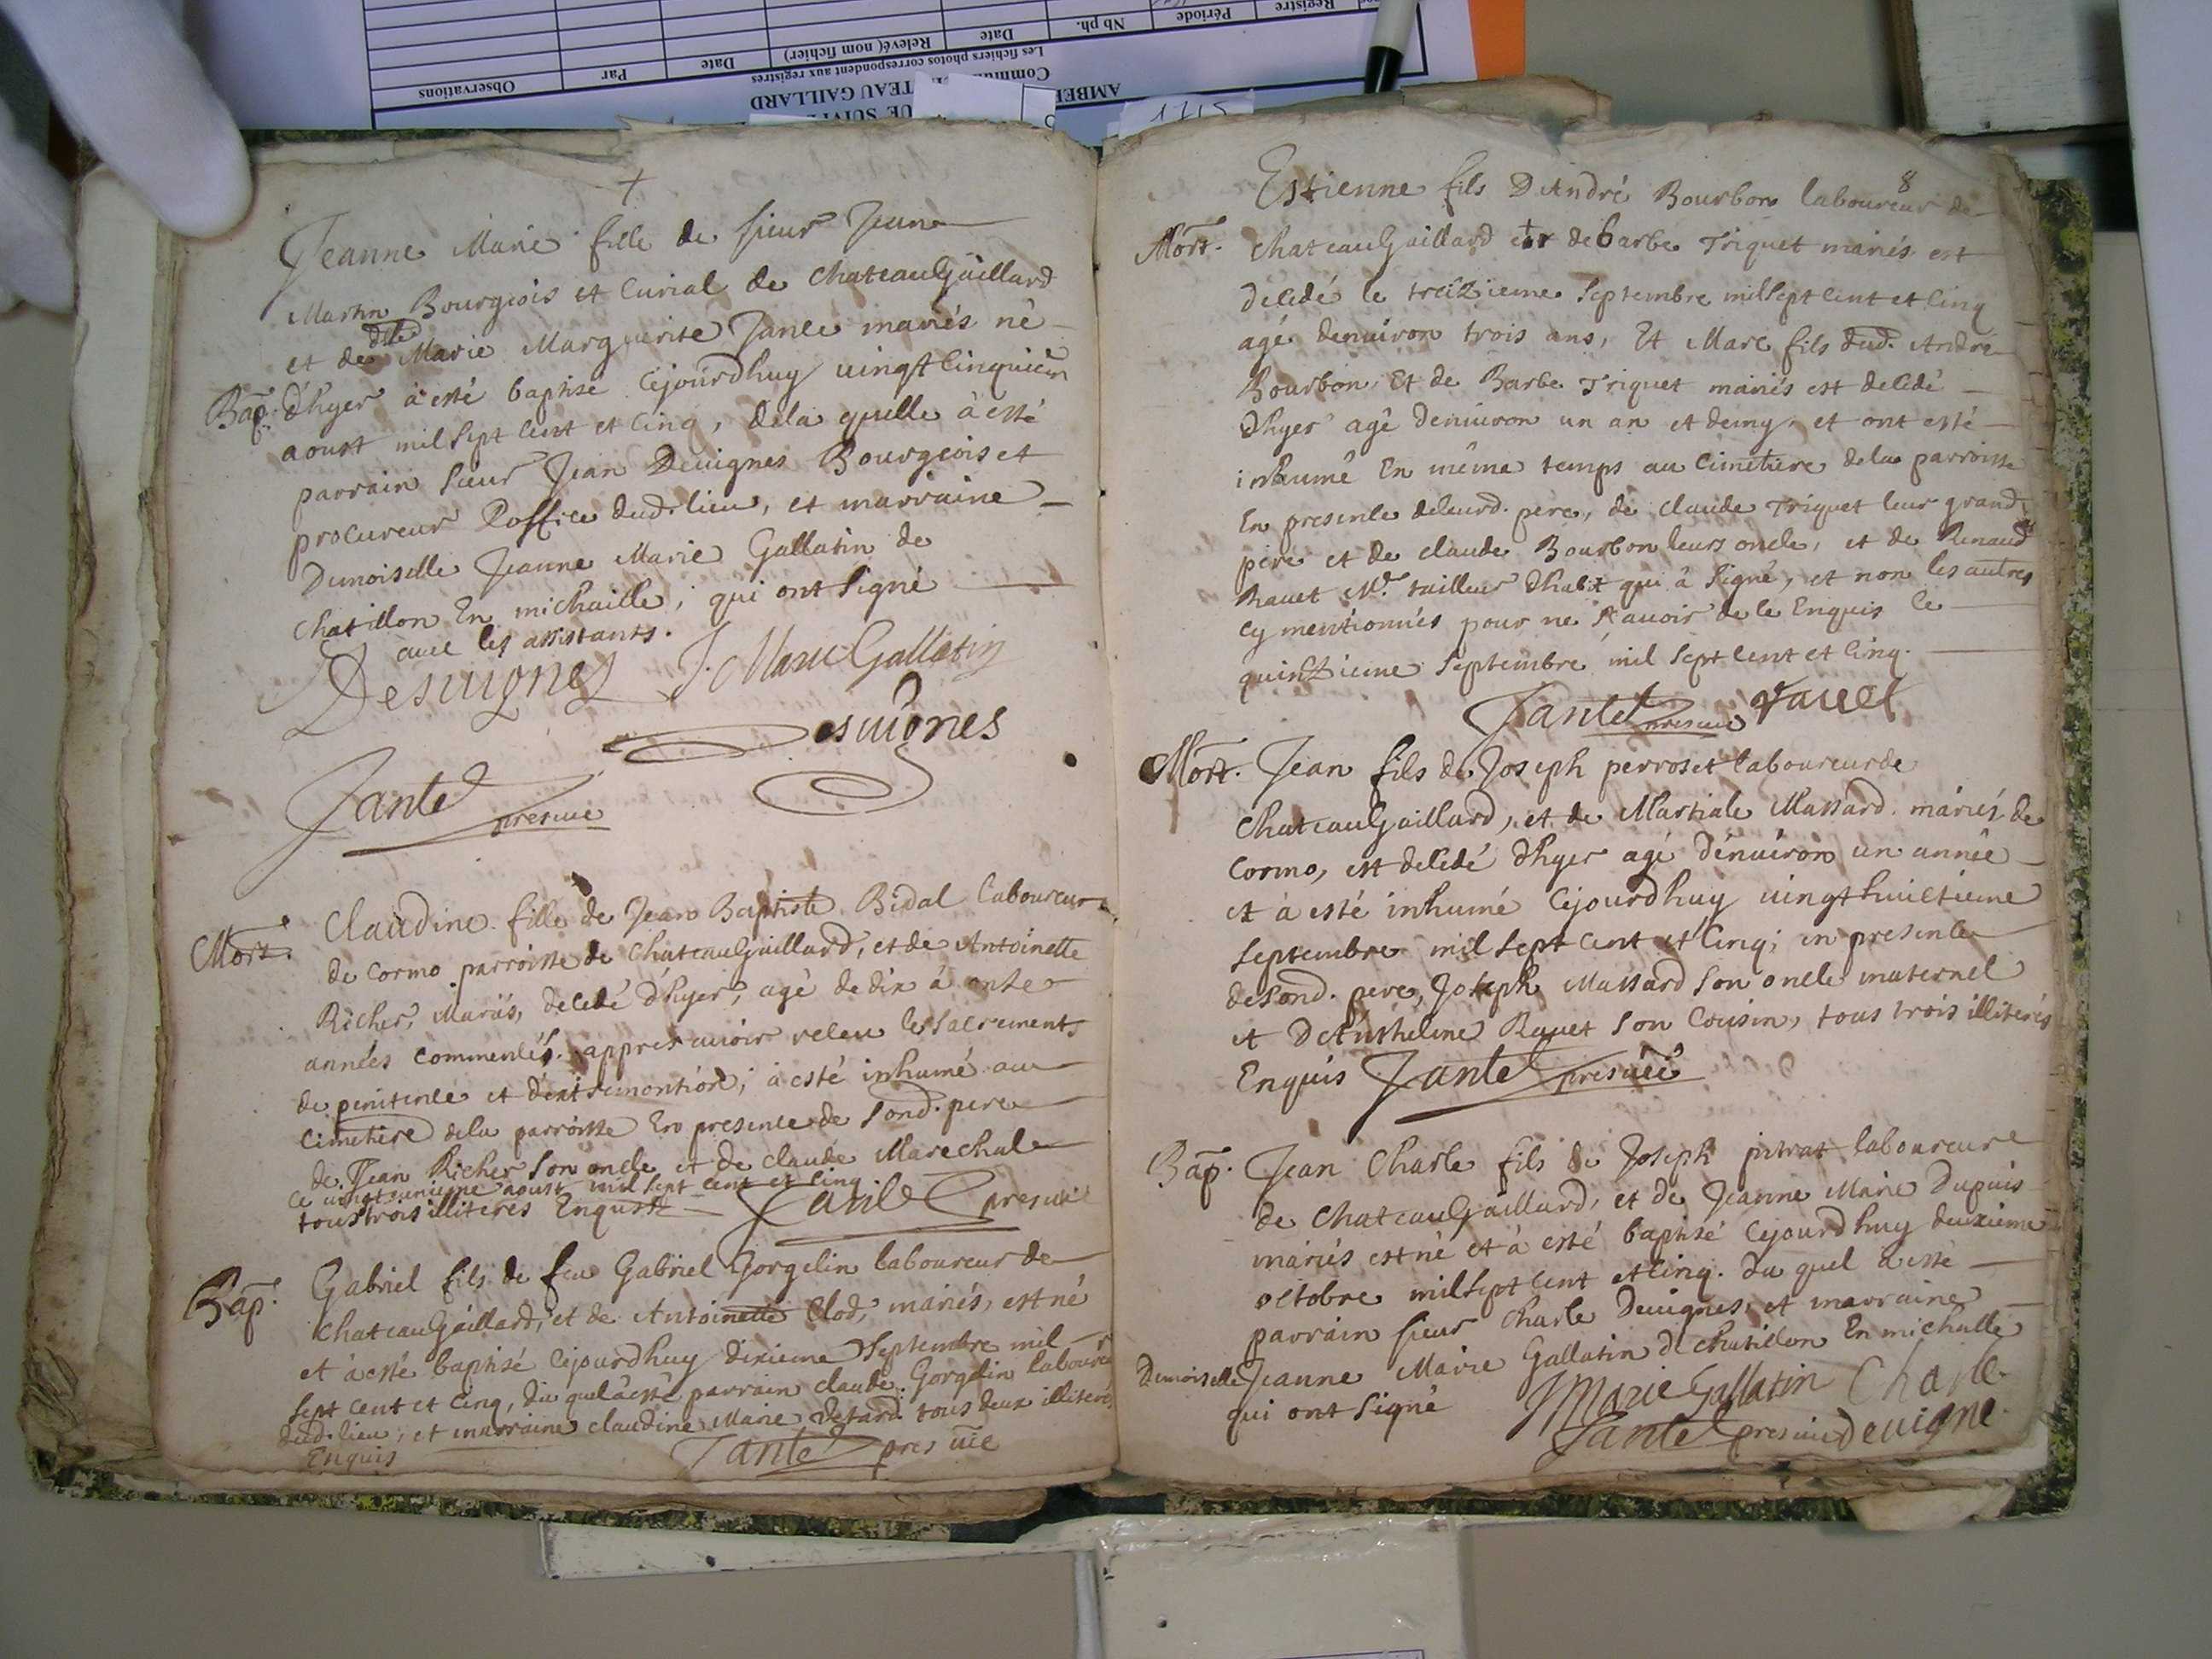 Observations
Par
Date
Relevé( nom fichier)
Date
Nb ph.
Période
Registre
Les fichiers photos correspondent aux registres
TEAU GAILLARD
1715
†
Jeanne Marie fille de sieur Jean
Martin Bourgeois et Curial de chateauGaillard
et de dlle Marie Marguerite Jante mariés né
Bap. d'hyer à esté baptisé Cejourdhuy vingt Cinquiem
aoust mil sept Cent et Cinq, dela quelle à esté
parrain sieur Jean Devignes Bourgeois et
procureur Doffice dud. lieu, et marraine
Demoiselle Jeanne Marie Gallatin de
Chatillon En michaille, qui ont signé
avec les assistants.
Desvignes J. Marie Gallatin
Desvignes
Jantet presvic
Mort. Claudine fille de Jean Baptiste Bidal laboureur
de Cormo parroisse de ChateauGaillard, et de Antoinette
Richer, Mariés, decedé d'hyer, agé de dix à onse
années commencés appres avoir receu les sacrements
de penitence et dextremontion, à esté inhumé au
Cimetiere dela parroisse En presence de sond. pere
de Jean Richer son oncle et de claude Marechal
Ce vingtunieme aoust mil sept cent et cinq
tous trois illiteres Enquis Jantet presvic
Bap. Gabriel fils de feu Gabriel Gorgelin laboureur de
ChateauGaillard, et de Antoinette Clod, mariés, est né
et à esté baptisé Cejourdhuy dixieme Septembre mil
sept cent et Cinq, du quel à esté parrain claude Gorgelin laboureur
dud. lieu, et marraine claudine Marie tous deux illiteres
Enquis Jantet presvic
8
Estienne fils D'André Bourbon laboureur de
Mort. chateauGaillard et de barbe Triquet mariés est
decedé le treizieme Septembre mil sept Cent et Cinq
agé denuiron trois ans, Et Marc fils dud. Andre
Bourbon Et de Barbe Triquet mariés est decedé
d'hyer agé denuiron un an et demy, et ont esté
inhumé En même temps au Cimetiere dela parroisse
En presence deleurd. pere, de claude Triquet leur grand
pere et de claude Bourbon leurs oncle, et de Renaud
Ravet Mre. tailleur dhabit qui à signé, et non les autres
cy mentionnés pour ne scavoir de ce Enquis Ce
quinzieme Septembre mil sept Cent et Cinq.
Jantet presvic ravet
Mort. Jean fils de Joseph perroset laboureur de
ChateauGaillard, et de Martiale Massard mariés de
Cormo, est decedé d'hyer agé denuiron un année
et à esté inhumé Cejourdhuy vingthuictieme
septembre mil sept cent et Cinq; en presence
desond. pere, Joseph Massard son oncle maternel
et D'Antheline Ravet son Cousin, tous trois illiterés
Enquis Jantet presvic
Bap. Jean Charle fils de Joseph pitrat laboureur
de ChateauGaillard, et de Jeanne Marie Dupuis
mariés est né et à esté baptisé Cejourdhuy deuxieme
octobre mil sept Cent et Cinq. du quel à esté
parrain sieur Charle Devignes, et marraine
Demoiselle Jeanne Marie Gallatin de chatillon En michalle
qui ont signé JMarie Gallatin Charle
Jantet presvic Devigne